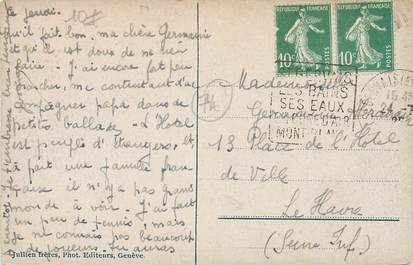 Ce Jeudi.
qu'il fait bon. ma chère Germaine
et qu'il est doux de ne rien
faire. J'ai encore fait peu
marches, me contentant d'ac
compagner papa dans de
petits ballades. L'Hotel
est peuplé d'étrangers, et
à part une famille fran-
çaise il n'y a pas grand
monde à voir. J'ai fait
un peu de tennis, mais
je ne connais pas beaucoup
de joueurs. Tu auras
Jullien frères, Phot. Editeurs, Genève.
10f
10c
POSTES
10c
POSTES
LES BAINS
SES EAUX
MONT BLANC
Mademoiselle
Germaine
13 Place de l'Hôtel
de Ville
Le Havre
(Seine Inf.)